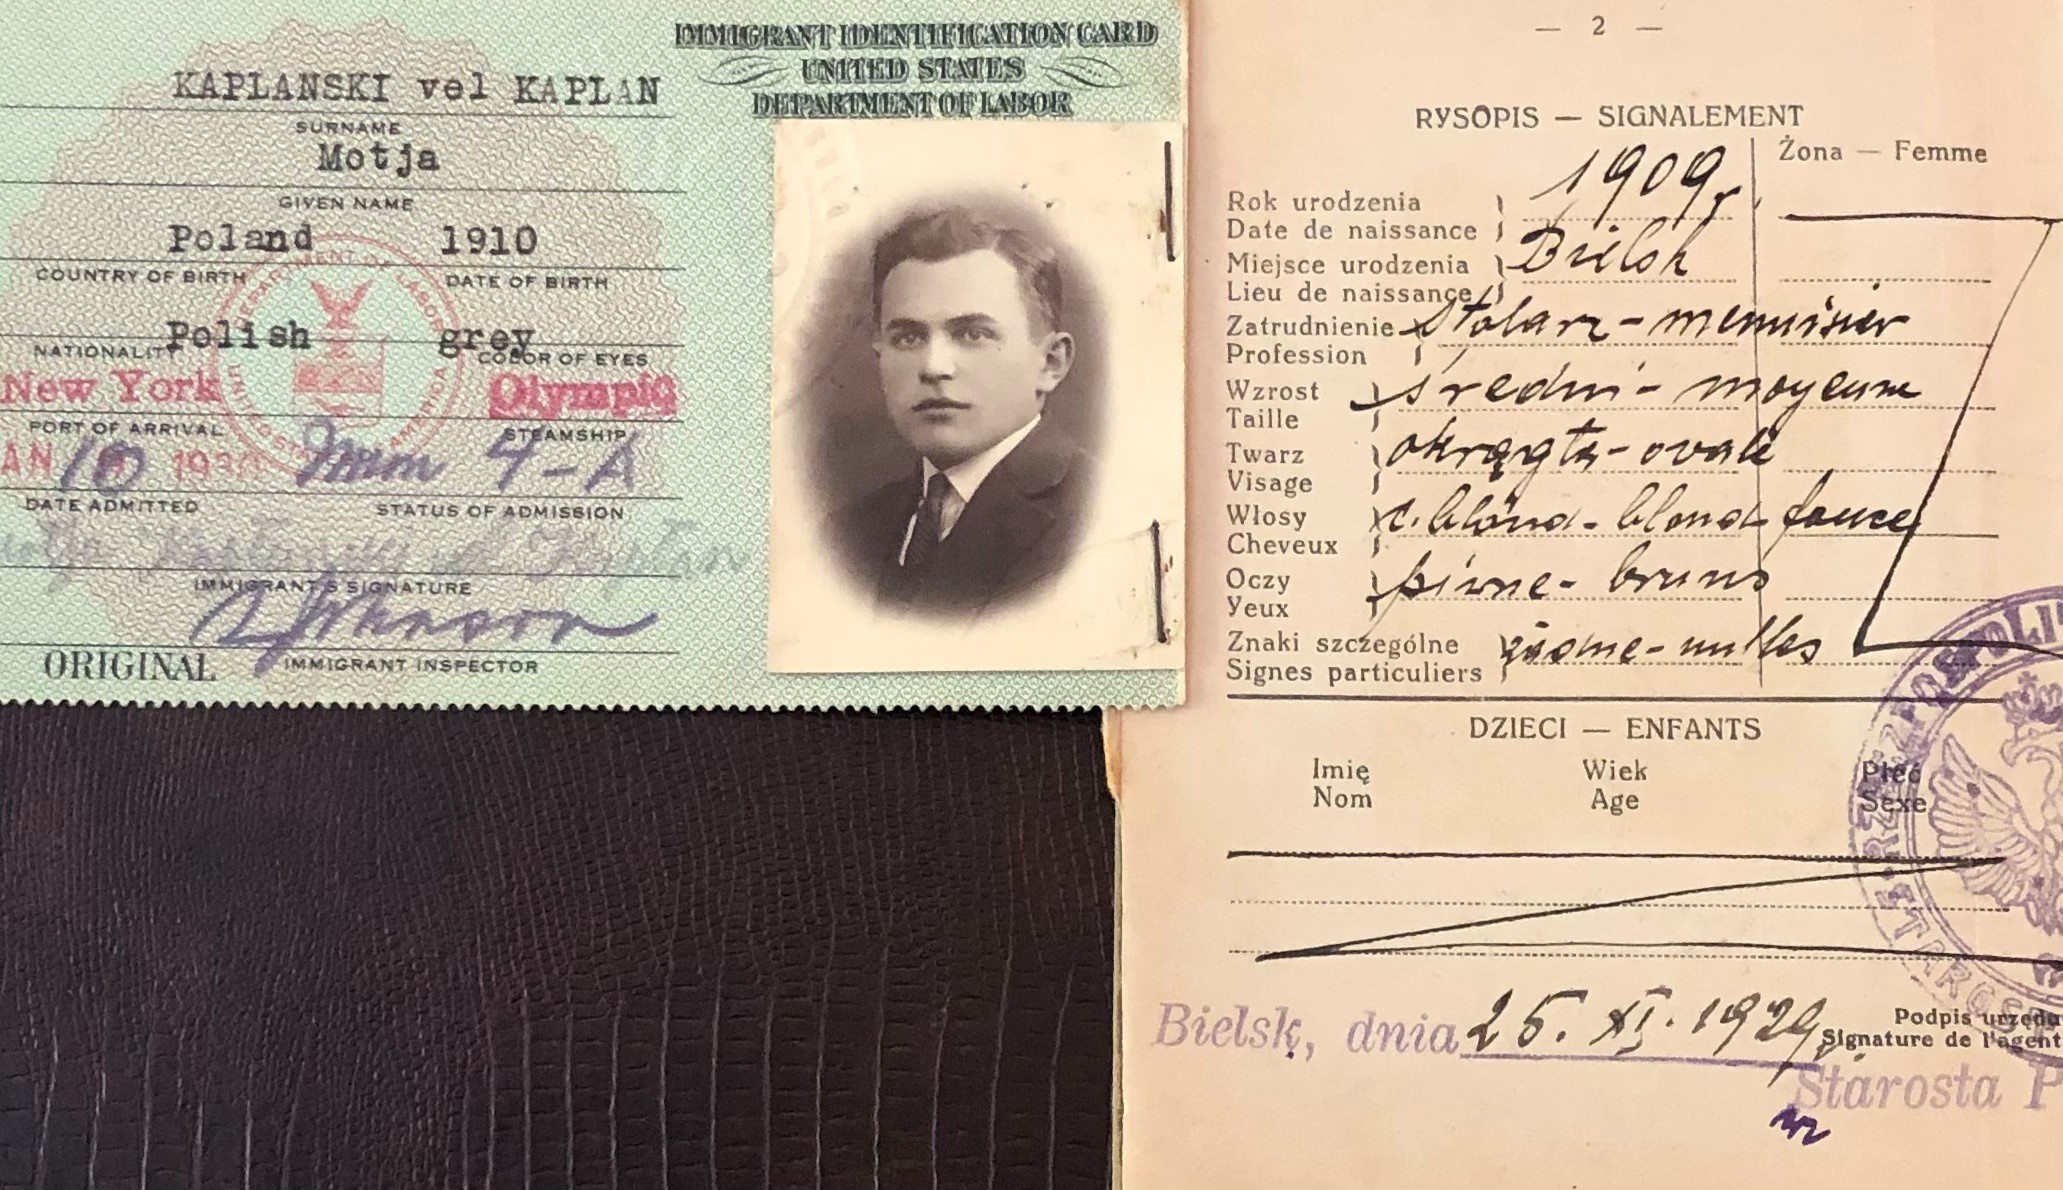 IMMIGRANT IDENTIFICATION CARD
UNITED STATES
DEPARTMENT OF LABOR
KAPLANSKI vel KAPLAN
SURNAME
Motja
GIVEN NAME
Poland 1910
COUNTRY OF BIRTH DATE OF BIRTH
Polish grey
NATIONALITY COLOR OF EYES
New York Olympic
PORT OF ARRIVAL STEAMSHIP
AN 10 1930 Imm 4-A
DATE ADMITTED STATUS OF ADMISSION
IMMIGRANT'S SIGNATURE
Johnson
ORIGINAL IMMIGRANT INSPECTOR
DEPARTMENT OF LABOR
— 2 —
RYSOPIS — SIGNALEMENT
Żona — Femme
Rok urodzenia 1909 r.
Date de naissance
Miejsce urodzenia Bielsk
Lieu de naissance
Zatrudnienie stolarz - menuisier
Profession
Wzrost średni - moyenne
Taille
Twarz okrągła - ovale
Visage
Włosy c. blond - blond foncé
Cheveux
Oczy piwne - bruns
Yeux
Znaki szczególne żadne - nulles
Signes particuliers
DZIECI — ENFANTS
Imię Wiek Płeć
Nom Age Sexe
Bielsk, dnia 25. XI. 1929 r.
Podpis urzędu
Signature de l'agent
Starosta P